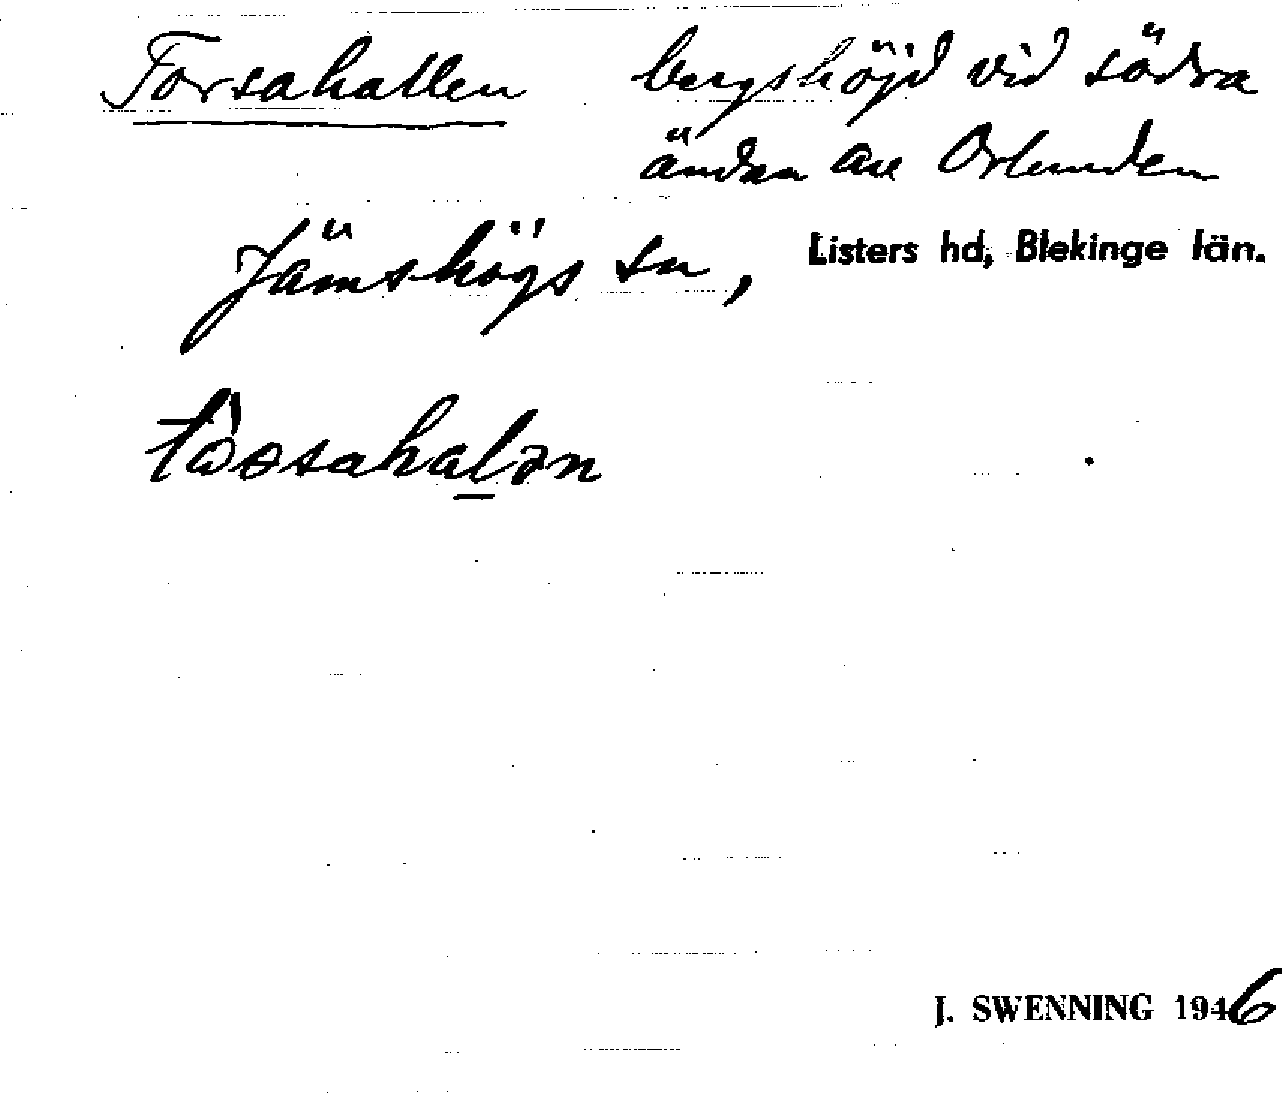 Forsahallen bergshöjd vid södra
ändan av Orlunden
Jämshögs sn, Listers hd, Blekinge län.
J. SWENNING 1946